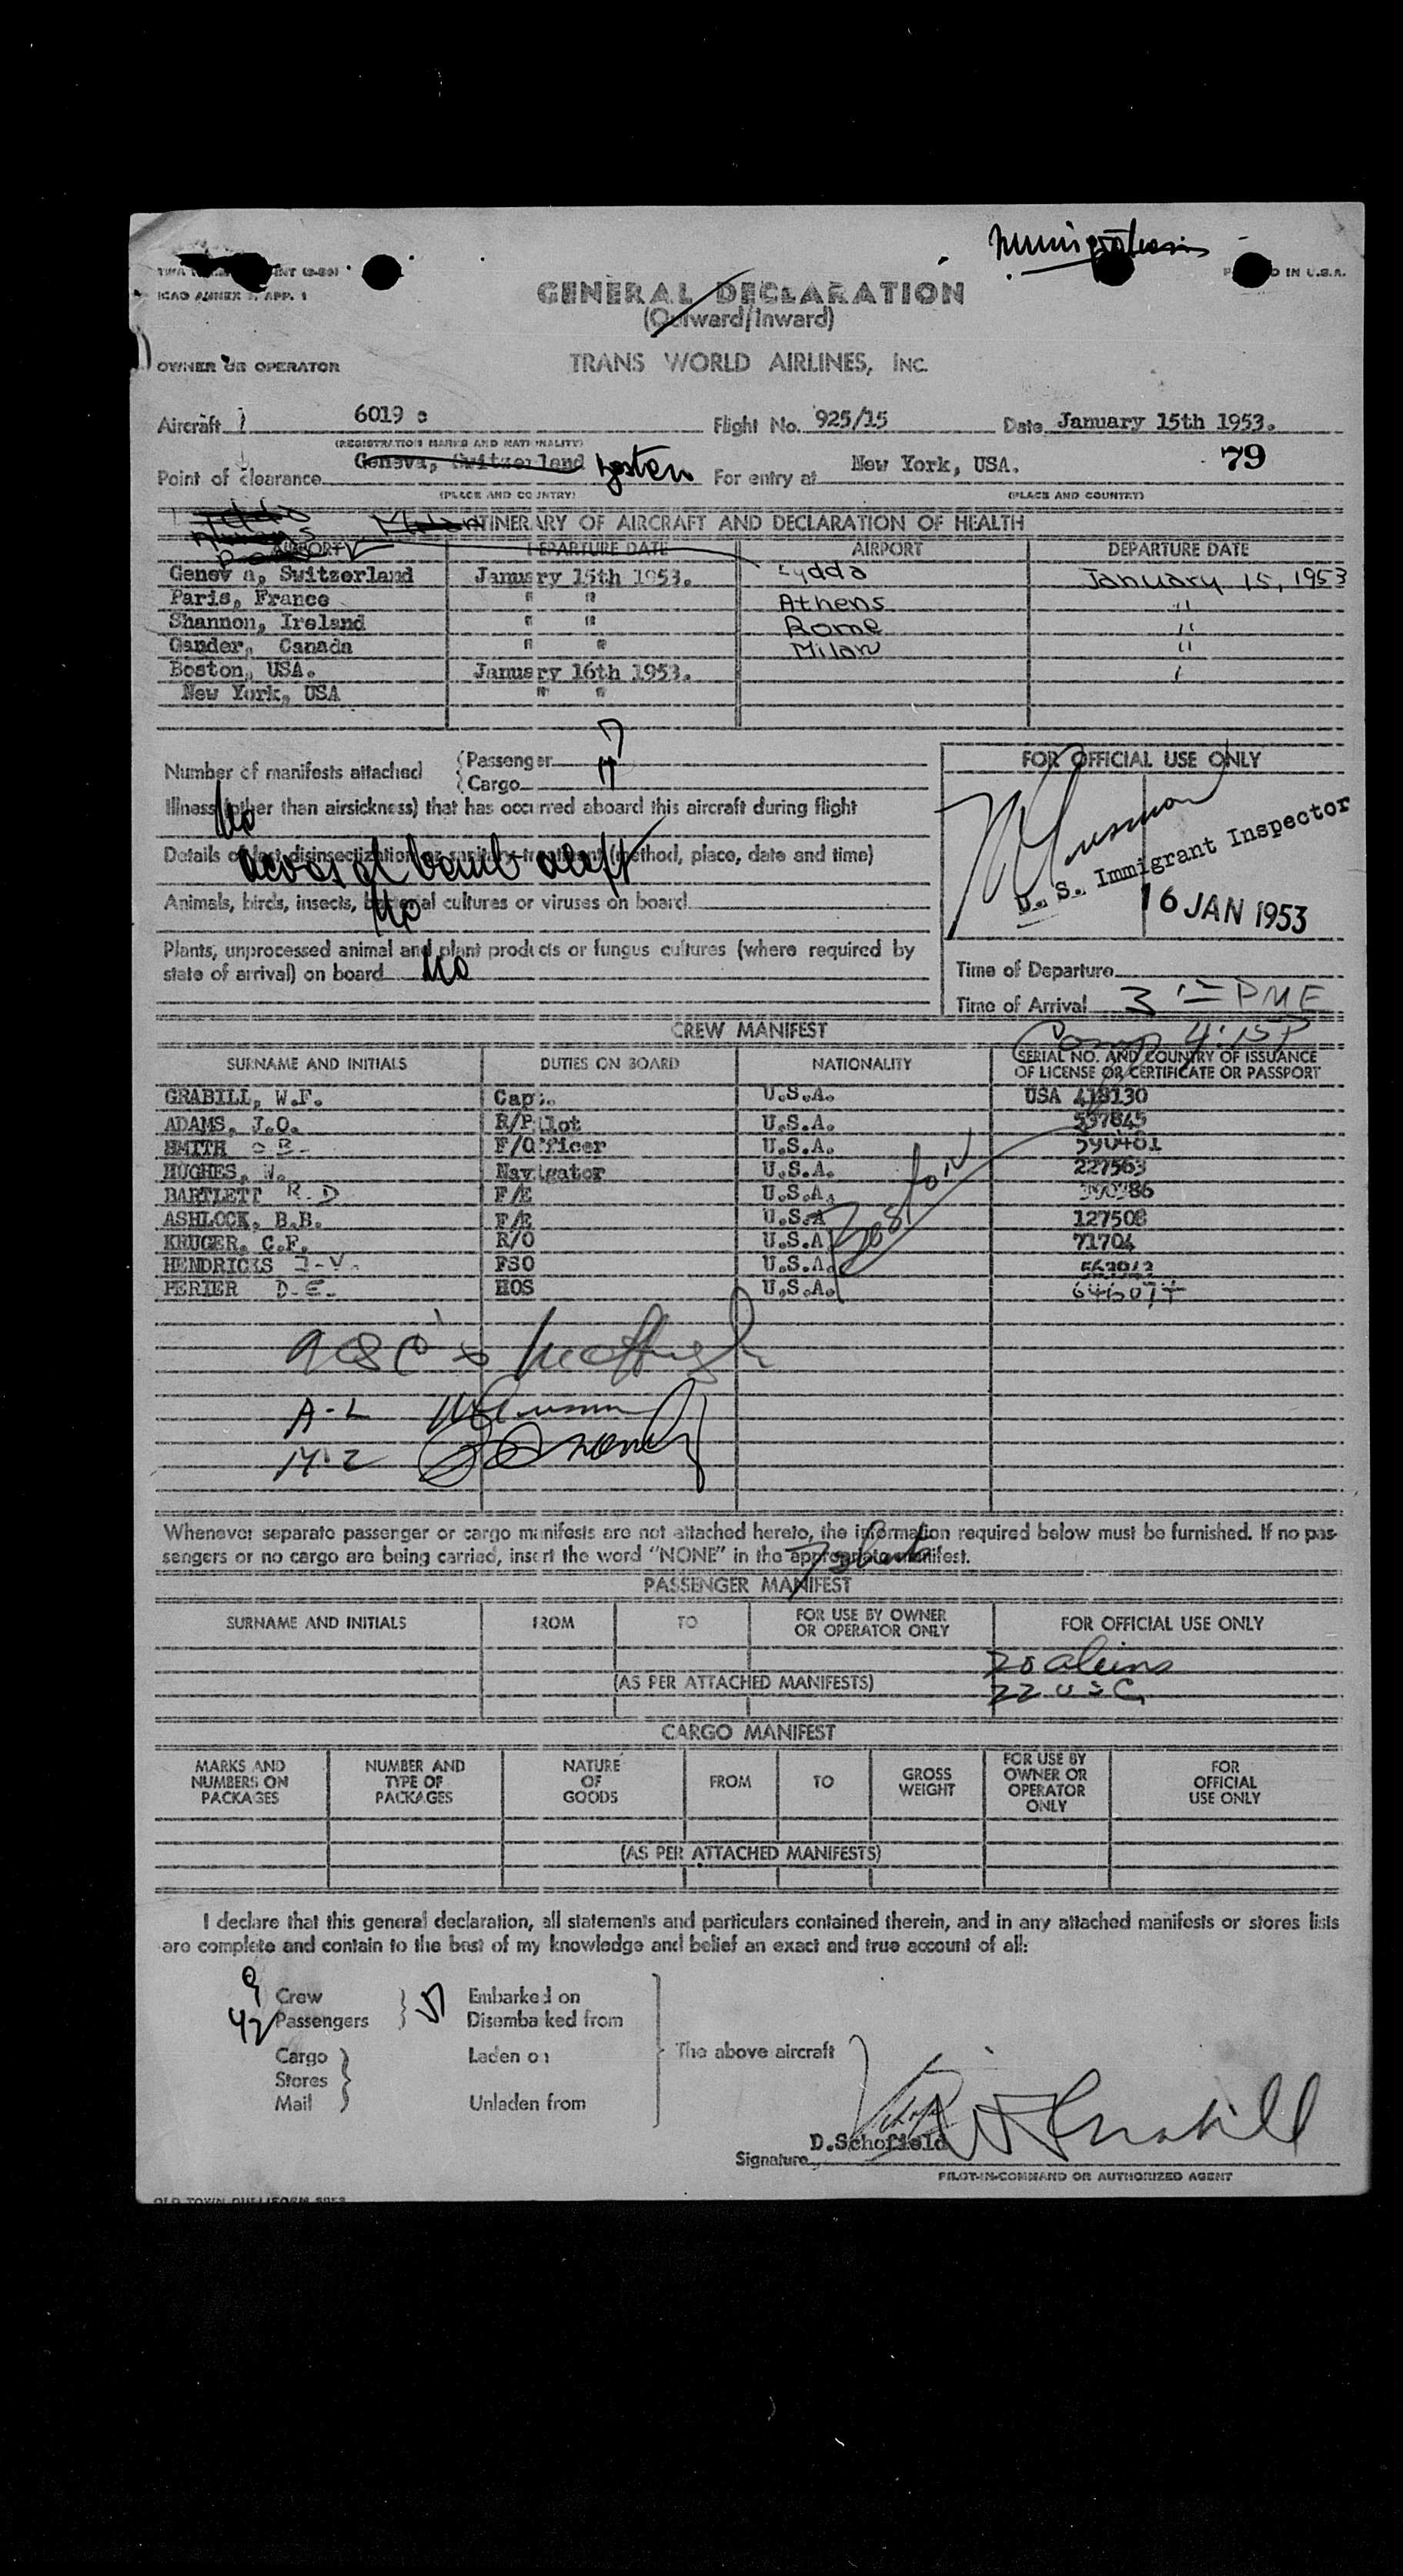 Immigration
PRINTED IN U.S.A.
ICAO ANNEX 9, APP. 1
GENERAL DECLARATION
(Outward/Inward)
OWNER OR OPERATOR TRANS WORLD AIRLINES, INC.
Aircraft 6019 c Flight No. 925/15 Date January 15th 1953.
(REGISTRATION MARKS AND NATIONALITY)
Point of clearance Geneva, Switzerland For entry at New York, USA. 79
(PLACE AND COUNTRY) (PLACE AND COUNTRY)
Milan
ITINERARY OF AIRCRAFT AND DECLARATION OF HEALTH
AIRPORT DEPARTURE DATE AIRPORT DEPARTURE DATE
Geneva, Switzerland January 15th 1953. Lydda January 15, 1953
Paris, France " " Athens "
Shannon, Ireland " " Rome "
Gander, Canada " " Milan "
Boston, USA. January 16th 1953.
New York, USA " "
Number of manifests attached Passenger
Cargo
FOR OFFICIAL USE ONLY
Illness (other than airsickness) that has occurred aboard this aircraft during flight
No
Details of last disinsectization or sanitary treatment (method, place, date and time)
aerosol bomb aloft
U.S. Immigrant Inspector
16 JAN 1953
Animals, birds, insects, bacterial cultures or viruses on board
No
Plants, unprocessed animal and plant products or fungus cultures (where required by
state of arrival) on board No
Time of Departure
Time of Arrival 3 12 PME
Comp 4:15P
CREW MANIFEST
SURNAME AND INITIALS DUTIES ON BOARD NATIONALITY SERIAL NO. AND COUNTRY OF ISSUANCE
OF LICENSE OR CERTIFICATE OR PASSPORT
GRABILL, W.F. Capt. U.S.A. USA 418130
ADAMS, J.O. R/Pilot U.S.A. 597845
SMITH O B. F/Officer U.S.A. 590481
HUGHES, W. Navigator U.S.A. 227563
BARTLETT R. D F/E U.S.A.
ASHLOCK, B.B. F/E U.S.A 127508
KRUGER, C.F. R/O U.S.A 71704
HENDRICKS J-V. FSO U.S.A.
PERIER D.E. HOS U.S.A.
Boston
A-L
M-Z
Whenever separate passenger or cargo manifests are not attached hereto, the information required below must be furnished. If no pas-
sengers or no cargo are being carried, insert the word "NONE" in the appropriate manifest.
PASSENGER MANIFEST
SURNAME AND INITIALS FROM TO FOR USE BY OWNER
OR OPERATOR ONLY FOR OFFICIAL USE ONLY
20 aliens
(AS PER ATTACHED MANIFESTS) 22 USC
CARGO MANIFEST
MARKS AND
NUMBERS ON
PACKAGES NUMBER AND
TYPE OF
PACKAGES NATURE
OF
GOODS FROM TO GROSS
WEIGHT FOR USE BY
OWNER OR
OPERATOR
ONLY FOR
OFFICIAL
USE ONLY
(AS PER ATTACHED MANIFESTS)
I declare that this general declaration, all statements and particulars contained therein, and in any attached manifests or stores lists
are complete and contain to the best of my knowledge and belief an exact and true account of all:
9 Crew Embarked on
42 Passengers 51 Disembarked from
Cargo Laden on The above aircraft
Stores
Mail Unladen from
D.Schofield W F Grabill
Signature
PILOT-IN-COMMAND OR AUTHORIZED AGENT